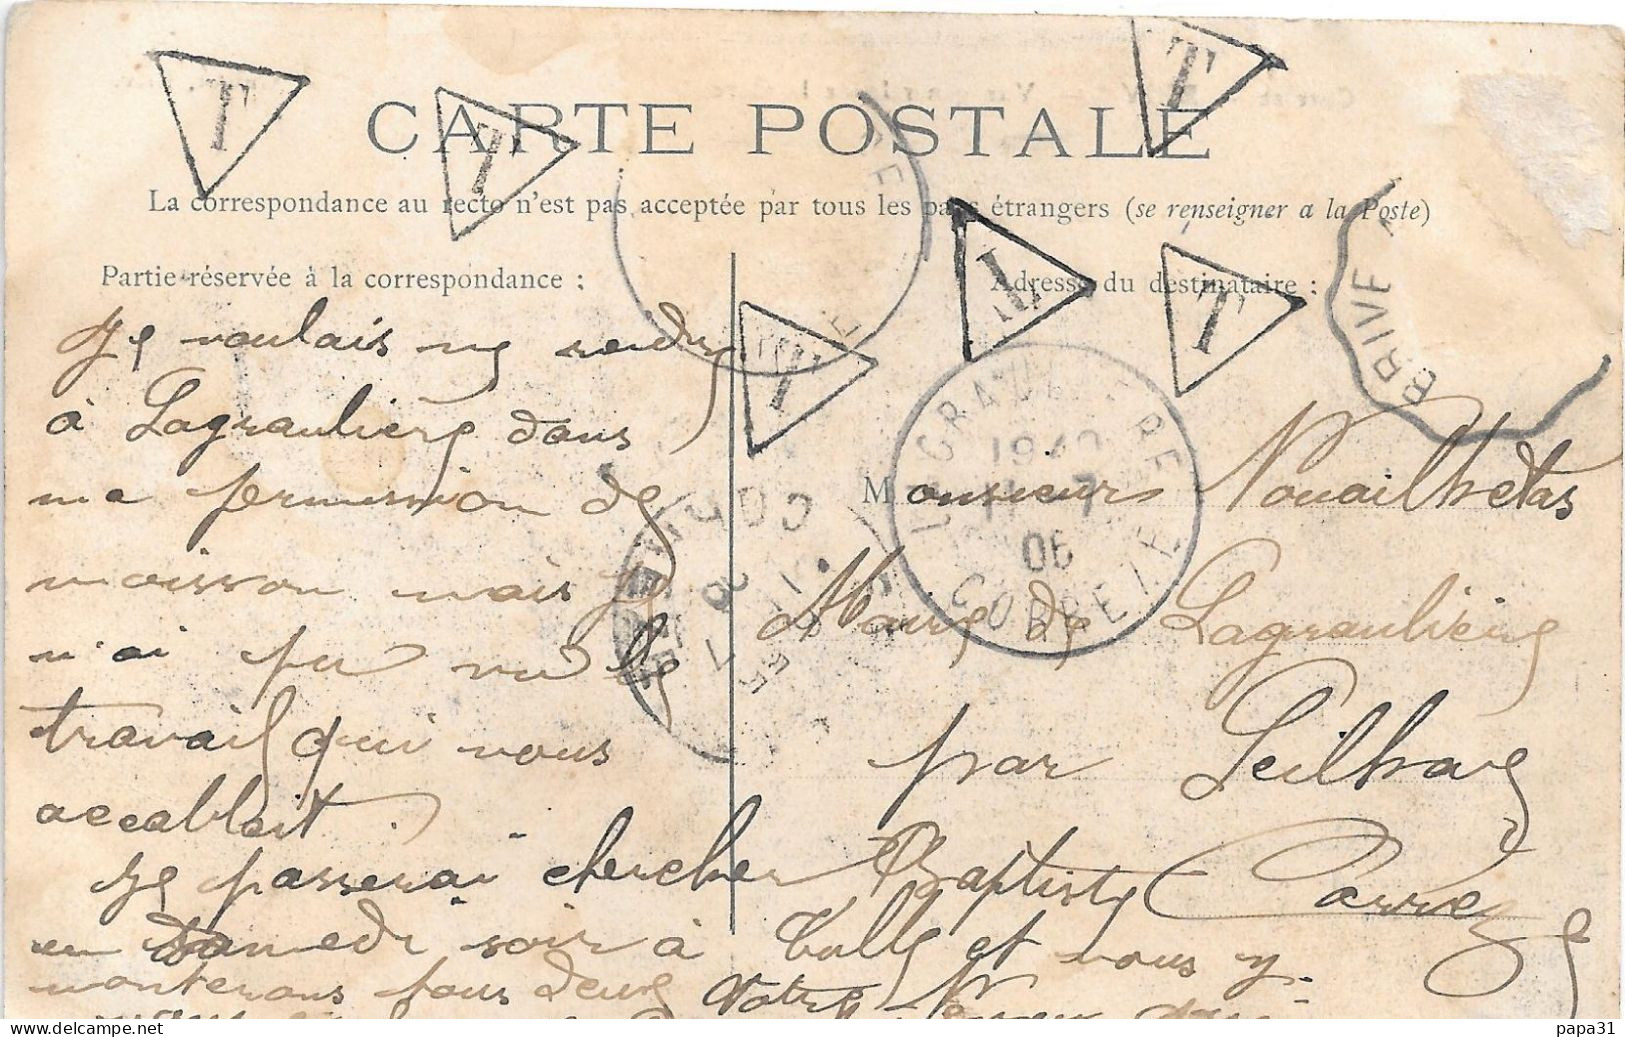 CARTE POSTALE
La correspondance au recto n'est pas acceptée par tous les pays étrangers (se renseigner a la Poste)
Partie réservée à la correspondance :
Je voulais me rendre
à Lagraulière dans
ma permission de
moisson mais je
n'ai pu vu le
travail qui vous
accablait.
Je passerai chercher Baptiste
samedi soir à Tulle et nous y
monterons tous deux Votre
Adresse du destinataire :
Monsieur Nouailhetas
Maire de Lagraulière
par Seilhac
Corrèze
T
T
T
T
T
T
BRIVE
LAGRAULIERE
CORREZE
06
papa31